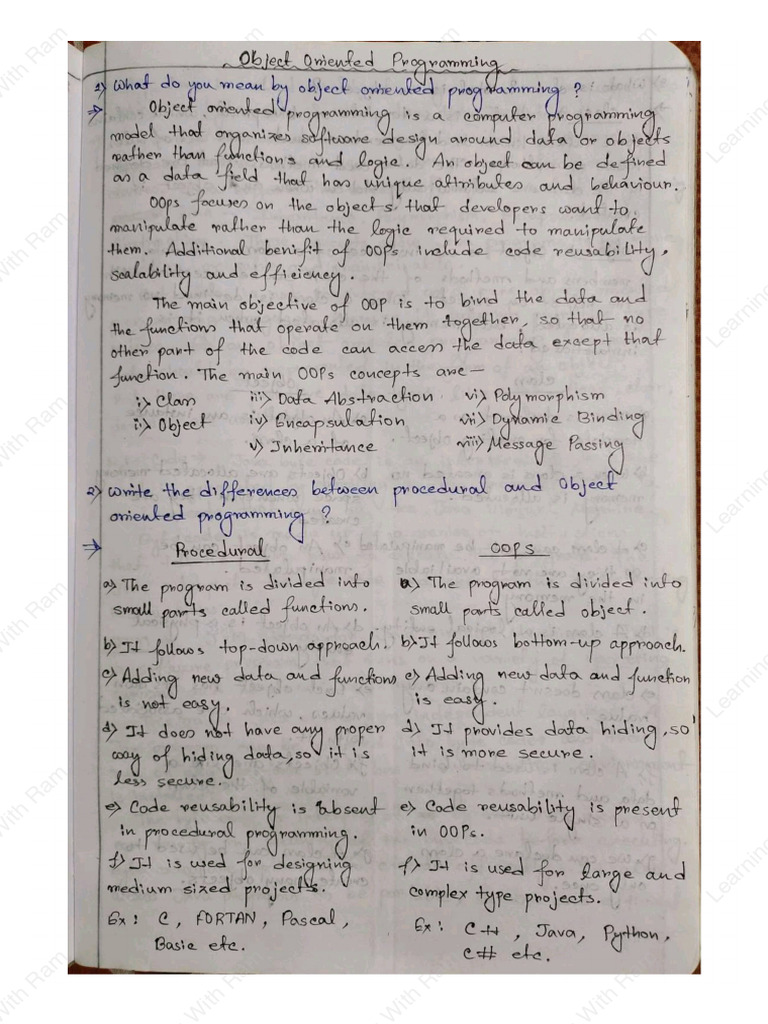 Object Oriented Programming
1) What do you mean by object oriented programming ?
⇒ Object oriented programming is a computer programming
model that organizes software design around data or objects
rather than functions and logic. An object can be defined
as a data field that has unique attributes and behaviour.
OOps focuses on the objects that developers want to
manipulate rather than the logic required to manipulate
them. Additional benifit of OOPs include code reusability,
scalability and efficiency.
The main objective of OOP is to bind the data and
the functions that operate on them together, so that no
other part of the code can access the data except that
function. The main OOPs concepts are —
i) Class iii) Data Abstraction vi) Polymorphism
ii) Object iv) Encapsulation vii) Dynamic Binding
v) Inheritance viii) Message Passing
2) Write the differences between procedural and Object
oriented programming ?
⇒ Procedural
a) The program is divided into
small parts called functions.
b) It follows top-down approach.
c) Adding new data and functions
is not easy.
d) It does not have any proper
way of hiding data, so it is
less secure.
e) Code reusability is absent
in procedural programming.
f) It is used for designing
medium sized projects.
Ex: C, FORTAN, Pascal,
Basic etc.
OOPS
a) The program is divided into
small parts called object.
b) It follows bottom-up approach.
c) Adding new data and function
is easy.
d) It provides data hiding, so
it is more secure.
e) Code reusability is present
in OOPs.
f) It is used for large and
complex type projects.
Ex: C++, Java, Python,
C# etc.
With Ram
With Ram
With Ram
With Ram
With Ram
With Ram
With Ram
With Ram
With Ram
Learning
Learning
Learning
Learning
Learning